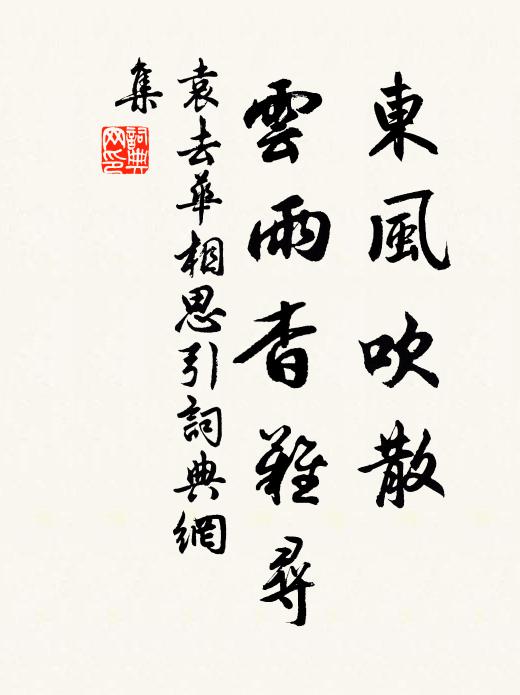 東風吹散
雲雨杳難尋
袁去華相思引詞典網
集
詞典
网印